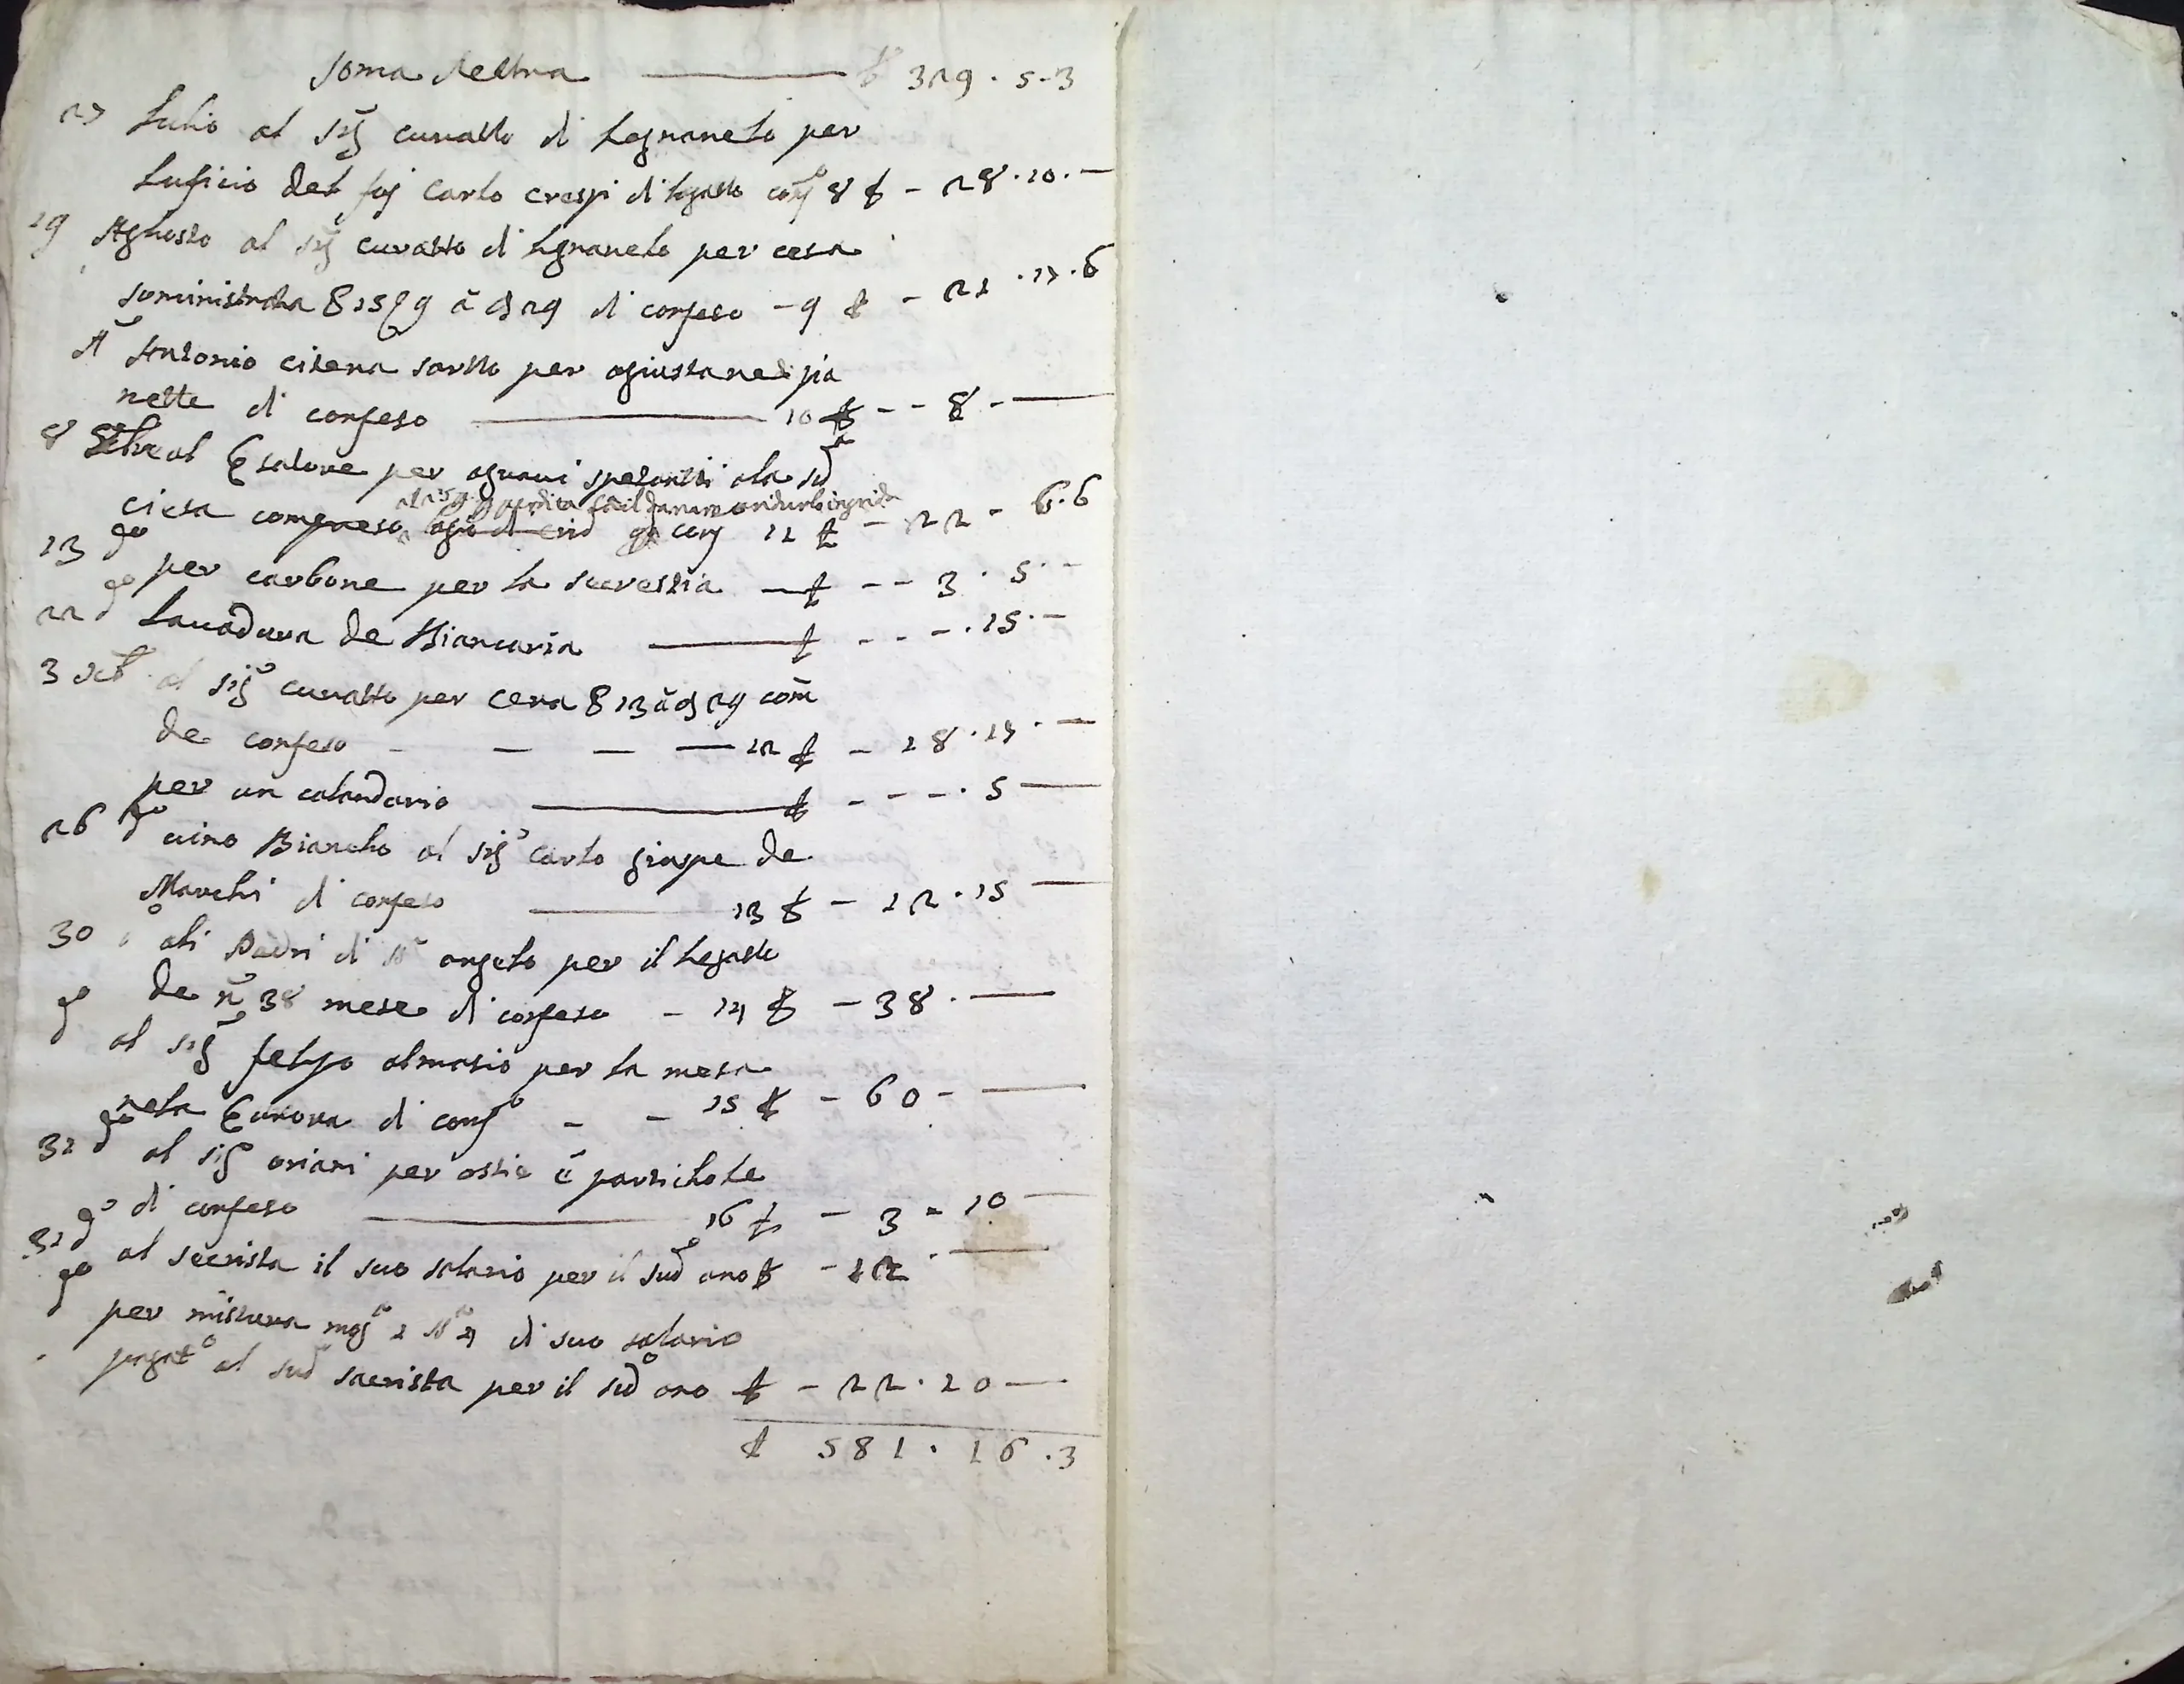 Soma deltra — £ 329 . 5 . 3
27 Lulio al Sig curatto di Legnanelo per
Luficio del fuj Carlo Crespi di legatto conf 8 £ - 28 . 10 . -
19 Aghosto al Sig curatto di Legnanelo per cera
soministrata 8 a di confeso - 9 £ - 21 . 17 . 6
A Antonio citera sartto per agiustare pia
nette di confeso — 10 £ - - 8 . -
8 al Esatore per agravi spetantti ala sud
ciesa compreso conf 11 £ - 22 - 6 . 6
13 do per carbone per la secrestia — £ - - 3 . 5 . -
22 do Lauadura de Biancaria — £ - - - . 15 . -
3 al Sig curatto per cera 8 13 a com
de confeso - — — — 12 £ - 18 . 17 . -
per un calandario — £ - - - . 5 —
26 do uino Biancho al Sig Carlo giuspe de
Marchi di confeso — 13 £ - 12 . 15 —
30 ali Padri di S angelo per il Legatto
de n 38 mese di confeso - 14 £ - 38 . —
do al Sig felipo almasio per la mesa
nela Eurora di conf - - 15 £ - 60 - —
31 do al Sig oriani per ostie e partichole
di confeso — 16 £ - 3 - 10 —
31 do al secrista il suo salario per il sud ano £ - 12 . —
do per mistura mog 2 di suo salario
pagat al sud sacrista per il sud ano £ - 22 . 10 —
£ 581 . 16 . 3